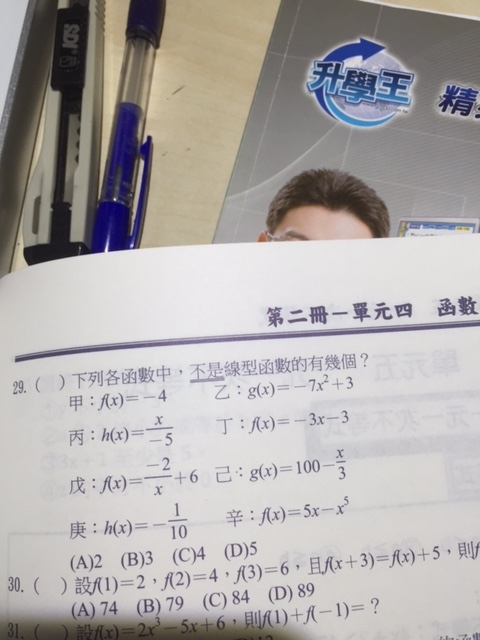 SDI
升學王
精
第二冊－單元四 函數
29. ( ) 下列各函數中，不是線型函數的有幾個？
甲：f(x)=-4 乙：g(x)=-7x²+3
丙：h(x)=x/-5 丁：f(x)=-3x-3
戊：f(x)=-2/x+6 己：g(x)=100-x/3
庚：h(x)=-1/10 辛：f(x)=5x-x⁵
(A)2 (B)3 (C)4 (D)5
30. ( ) 設f(1)=2，f(2)=4，f(3)=6，且f(x+3)=f(x)+5，則f
(A) 74 (B) 79 (C) 84 (D) 89
31. ( ) 設f(x)=2x³-5x+6，則f(1)+f(-1)=？